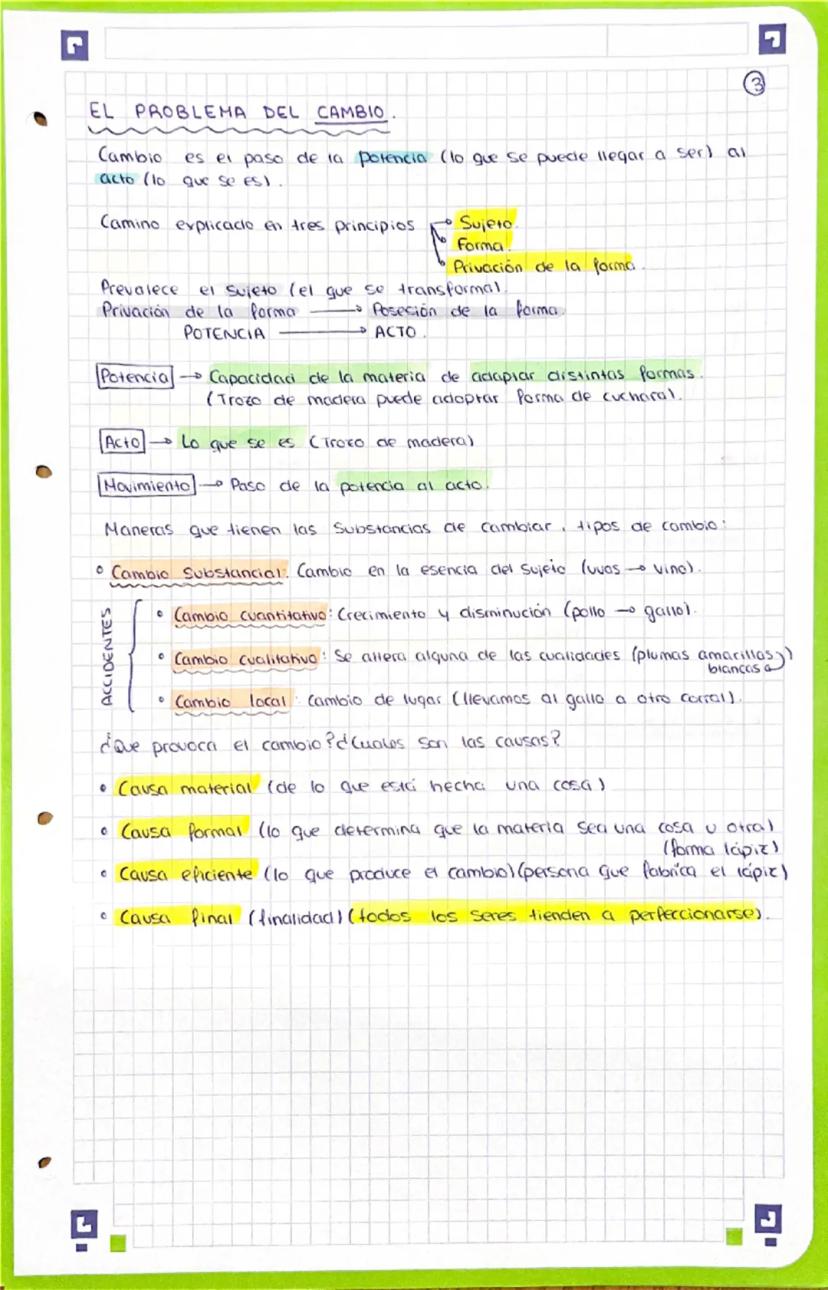 3
EL PROBLEMA DEL CAMBIO.
Cambio es el paso de la potencia (lo que se puede llegar a ser) al
acto (lo que se es).
Camino explicado en tres principios → Sujeto.
→ Forma.
→ Privación de la forma.
Prevalece el sujeto (el que se transforma).
Privación de la forma → Posesión de la forma.
POTENCIA → ACTO.
Potencia → Capacidad de la materia de adaptar distintas formas.
(Trozo de madera puede adoptar forma de cuchara).
Acto → Lo que se es (Trozo de madera)
Movimiento → Paso de la potencia al acto.
Maneras que tienen las substancias de cambiar, tipos de cambio:
• Cambio substancial: Cambio en la esencia del sujeto (uvas → vino).
ACCIDENTES
• Cambio cuantitativo: Crecimiento y disminución (pollo → gallo).
• Cambio cualitativo: Se altera alguna de las cualidades (plumas amarillas →
blancas)
• Cambio local: cambio de lugar (llevamos al gallo a otro corral).
¿Que provoca el cambio? ¿Cuales son las causas?
• Causa material (de lo que está hecha una cosa)
• Causa formal (lo que determina que la materia sea una cosa u otra)
(forma lápiz)
• Causa eficiente (lo que produce el cambio) (persona que fabrica el lápiz)
• Causa final (finalidad) (todos los seres tienden a perfeccionarse).